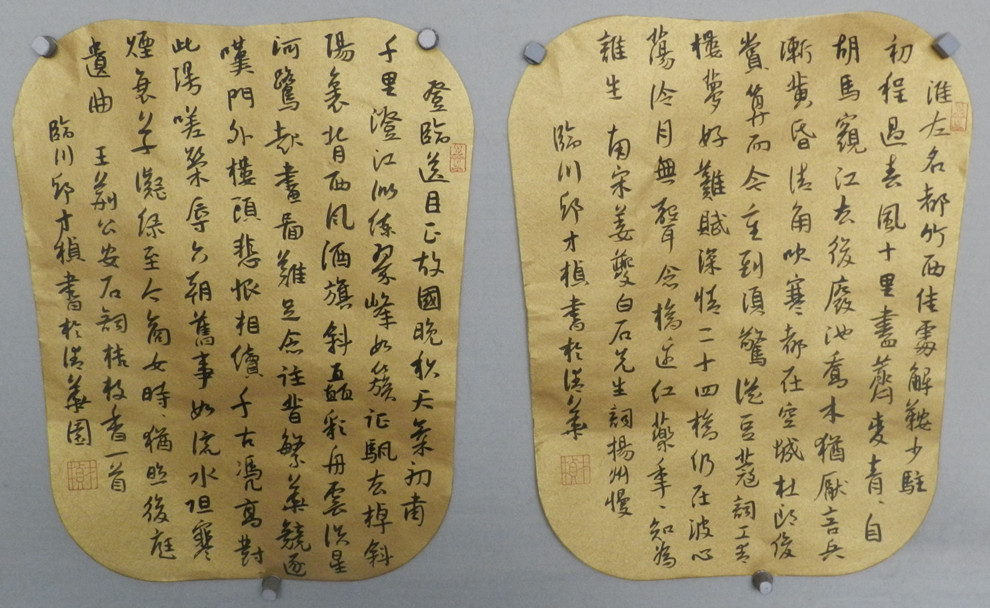 淮左名都竹西佳處解鞍少駐
初程過春風十里盡薺麥青々自
胡馬窺江去後廢池喬木猶厭言兵
漸黃昏清角吹寒都在空城杜郎俊
賞算而今重到須驚縱豆蔻詞工青
樓夢好難賦深情二十四橋仍在波心
蕩冷月無聲念橋邊紅藥年々知為
誰生 南宋姜夔白石先生詞揚州慢
臨川邱才楨書於清華
登臨送目正故國晚秋天氣初肅
千里澄江似練翠峰如簇征颿去棹斜
陽裏背西風酒旗斜矗彩舟雲淡星
河鷺起畫圖難足念往昔繁華競逐
嘆門外樓頭悲恨相續千古憑高對
此漫嗟榮辱六朝舊事如流水但寒
煙衰草凝綠至今商女時々猶唱後庭
遺曲 王荊公安石詞桂枝香一首
臨川邱才楨書於清華園